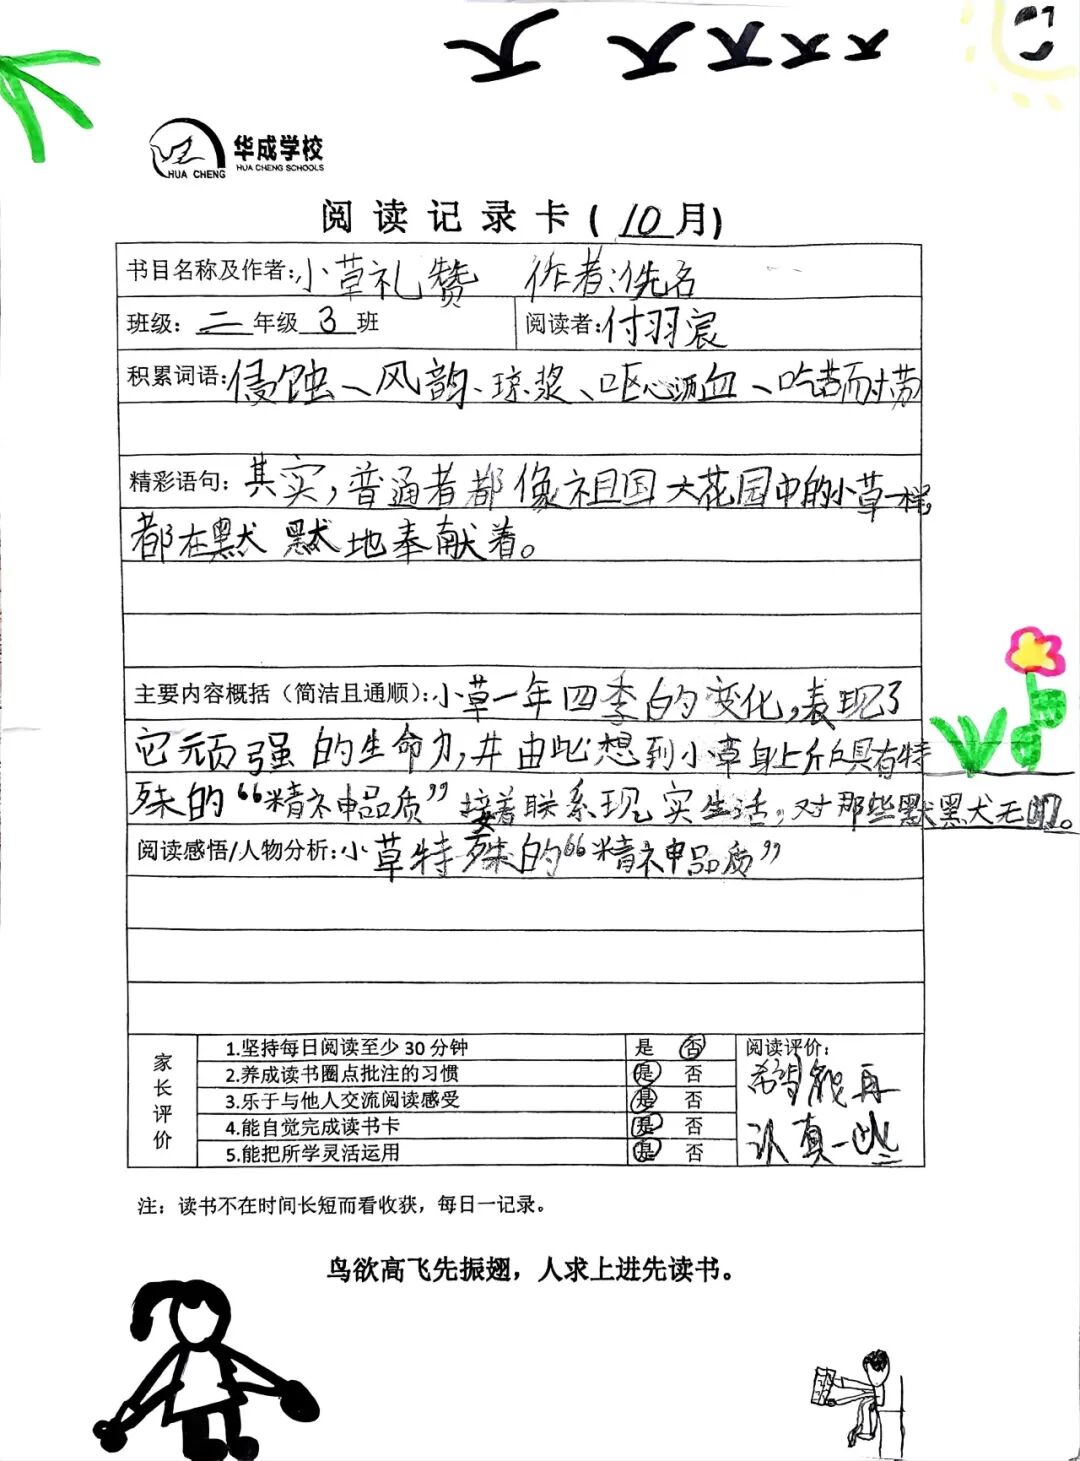 华成学校
HUA CHENG SCHOOLS
HUA CHENG
阅读记录卡(10月)
书目名称及作者:小草礼赞 作者:佚名
班级:二年级3班 阅读者:付羽宸
积累词语:侵蚀、风韵、琼浆、呕心沥血、吃苦耐劳
精彩语句:其实,普通者都像祖国大花园中的小草一样,
都在默默地奉献着。
主要内容概括(简洁且通顺):小草一年四季的变化,表现了
它顽强的生命力,并由此想到小草身上所具有特
殊的“精神品质”接着联系现实生活,对那些默默无闻。
阅读感悟/人物分析:小草特殊的“精神品质”
家长评价
1.坚持每日阅读至少30分钟 是 否
2.养成读书圈点批注的习惯 是 否
3.乐于与他人交流阅读感受 是 否
4.能自觉完成读书卡 是 否
5.能把所学灵活运用 是 否
阅读评价:
希望能再
认真一些
注:读书不在时间长短而看收获,每日一记录。
鸟欲高飞先振翅,人求上进先读书。